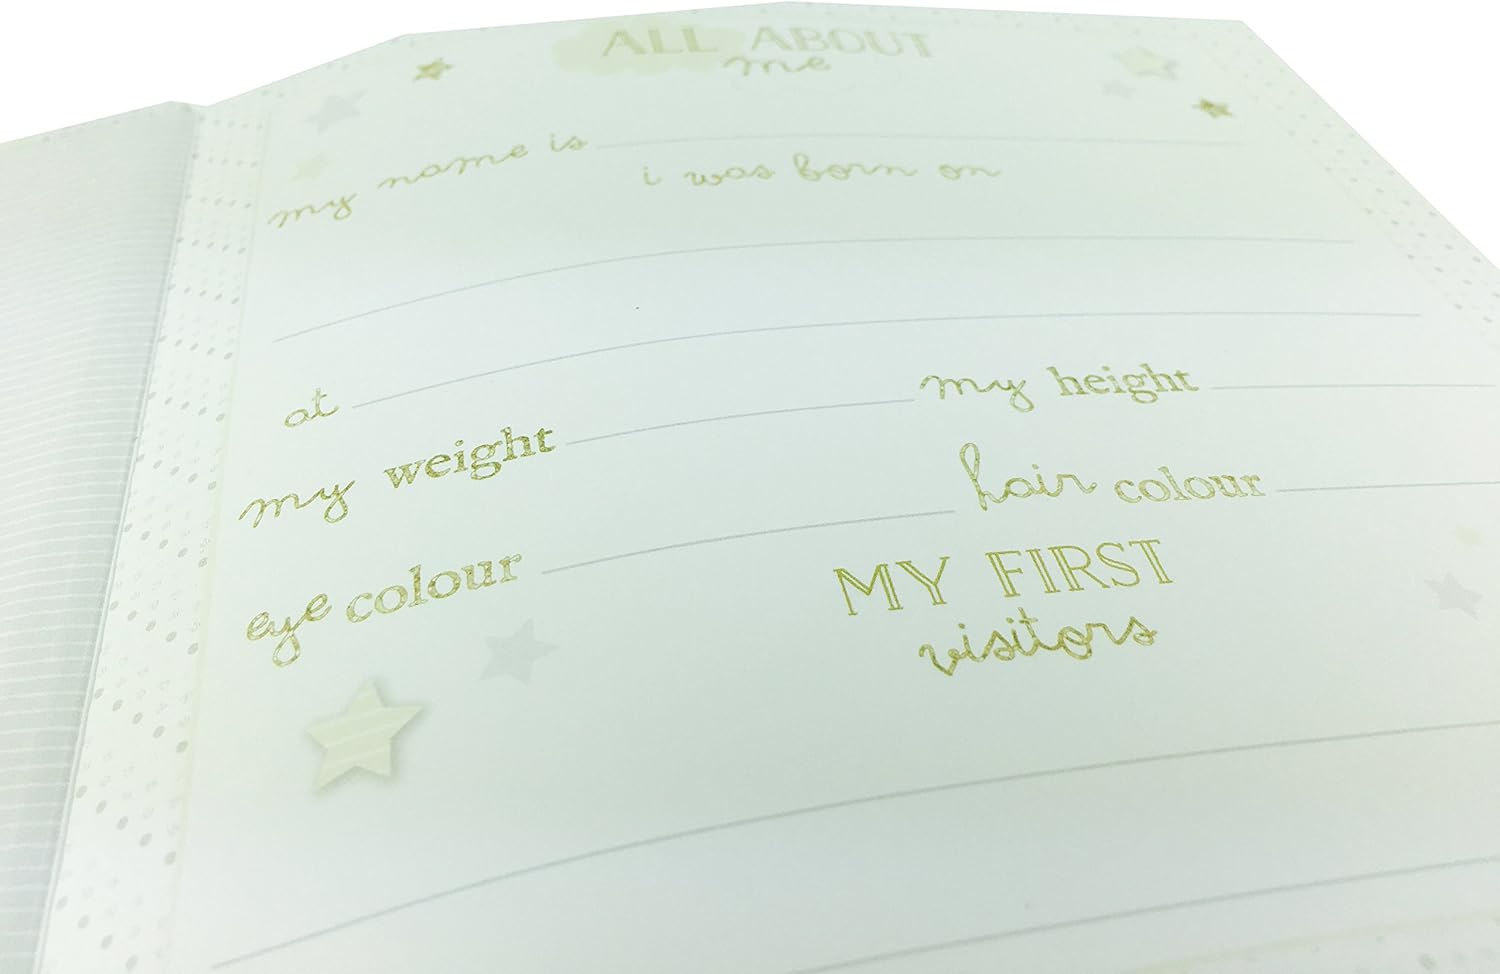 ALL ABOUT
me
my name is
i was born on
at
my weight my height
eye colour hair colour
MY FIRST
visitors